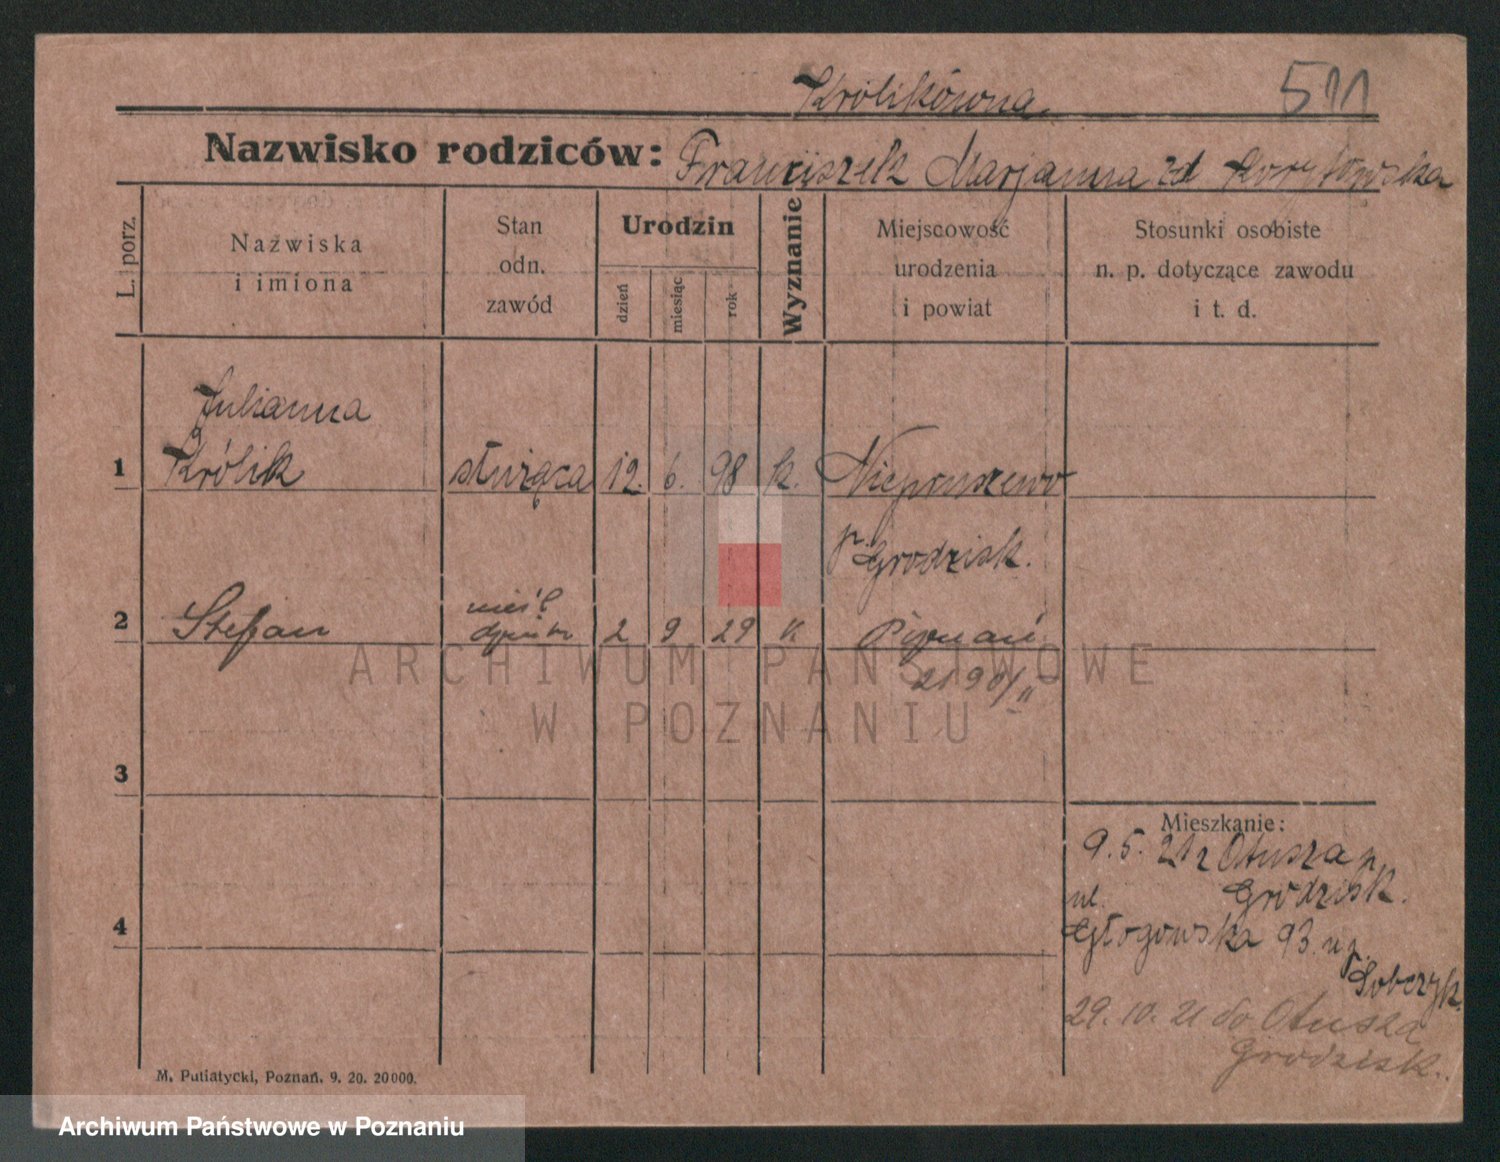 Królikówna
511
Nazwisko rodziców: Franciszek Marjanna zd Korytowska
L. porz.
Nazwiska
i imiona
Stan
odn.
zawód
Urodzin
dzień
miesiąc
rok
Wyznanie
Miejscowość
urodzenia
i powiat
Stosunki osobiste
n. p. dotyczące zawodu
i t. d.
Julianna
1 Królik służąca 12. 6. 98 k. Niepruszewo
p. Grodzisk.
nieśl
2 Stefan 2 9 29 k Poznań
2190/II
3
4
Mieszkanie:
9. 5. 21 z Otusza p.
ul. Grodzisk.
Głogowska 93. u p.
Sobczyk.
29. 10. 21 do Otusza
Grodzisk.
M. Putiatycki, Poznań. 9. 20. 20000.
ARCHIWUM PAŃSTWOWE
W POZNANIU
Archiwum Państwowe w Poznaniu